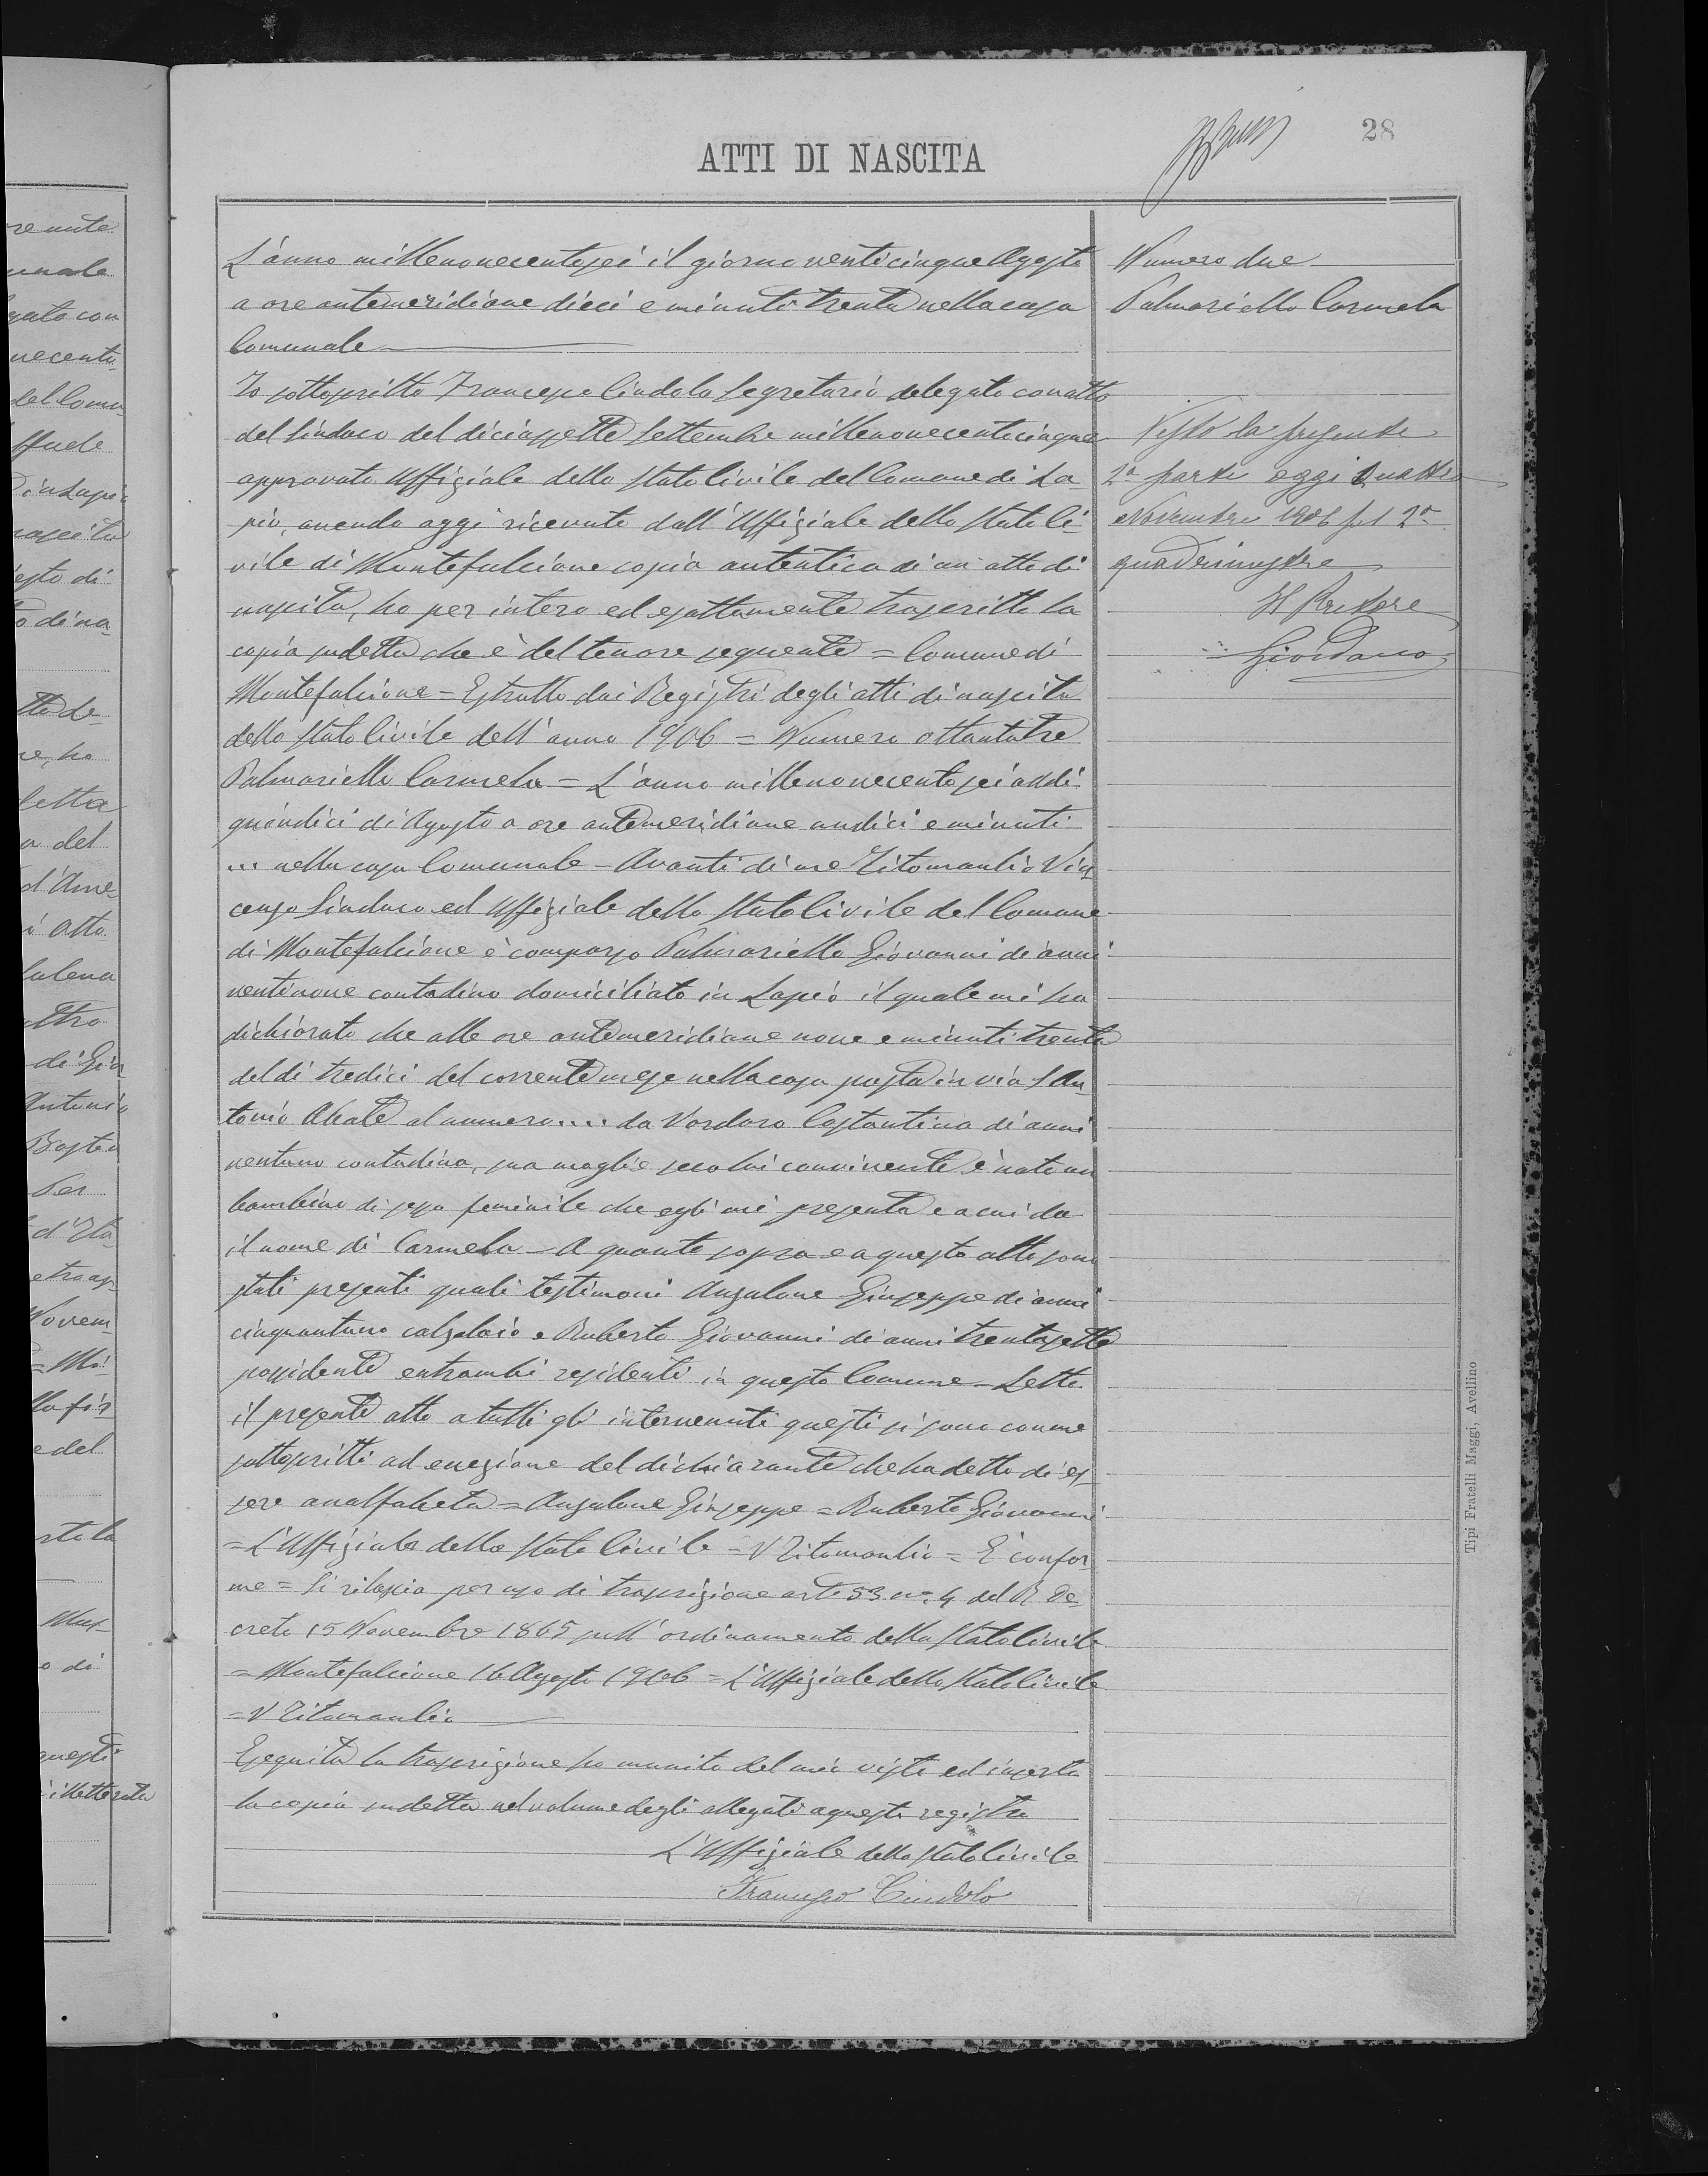 28
ATTI DI NASCITA
L'anno millenovecentosei il giorno venticinque Agosto
a ore antemeridiane dieci e minuti trenta nella casa
Comunale
Io sottoscritto Francesco Cindolo Segretario delegato con atto
del Sindaco del diciassette Settembre millenovecentocinque
approvato Uffiziale dello Stato Civile del Comune di La-
pio, avendo oggi ricevuto dall'Uffiziale dello Stato Ci-
vile di Montefalcione copia autentica di un atto di
nascita, ho per intero ed esattamente trascritto la
copia sudetta che è del tenore seguente = Comune di
Montefalcione = Estratto dai Registri degli atti di nascita
dello Stato Civile dell'anno 1906 = Numero ottantatre
Palmariello Carmela = L'anno millenovecentosei addì
quindici di Agosto a ore antemeridiane undici e minuti
... nella casa Comunale - Avanti di me Titomanlio Vin
cenzo Sindaco ed Uffiziale dello Stato Civile del Comune
di Montefalcione è comparso Palmariello Giovanni di anni
ventinove contadino domiciliato in Lapio il quale mi ha
dichiarato che alle ore antemeridiane nove e minuti trenta
del dì tredici del corrente mese nella casa posta in via S. An-
tonio Abate al numero .... da Vardaro Costantina di anni
ventuno contadina, sua moglie seco lui convivente è nato un
bambino di sesso feminile che egli mi presenta e a cui da
il nome di Carmela - A quanto sopra e a questo atto sono
stati presenti quali testimoni Anzalone Giuseppe di anni
cinquantuno calzolaio e Ruberto Giovanni di anni trentasette
possidente entrambi residenti in questo Comune - Letto
il presente atto a tutti gli intervenuti questi si sono con me
sottoscritti ad eccezione del dichiarante che ha detto di es-
sere analfabeta = Anzalone Giuseppe = Ruberto Giovanni
= L'Uffiziale dello Stato Civile = V Titomanlio = È confor
me = Si rilascia per uso di trascrizione art: 53 n.° 4 del R De-
creto 15 Novembre 1865 sull'ordinamento dello Stato Civile
= Montefalcione 16 Agosto 1906 = L'Uffiziale dello Stato Civile
= V Titomanlio
Eseguita la trascrizione ho munito del mio visto ed inserta
la copia sudetta nel volume degli allegati a questo registro
L'Uffiziale dello Stato Civile
Francesco Cindolo
Numero due
Palmariello Carmela
Visto la presente
2ª parte oggi quattro
Novembre 1906 pel 2°
quadrimestre
Il Pretore
Giordano
Tipi Fratelli Maggi, Avellino